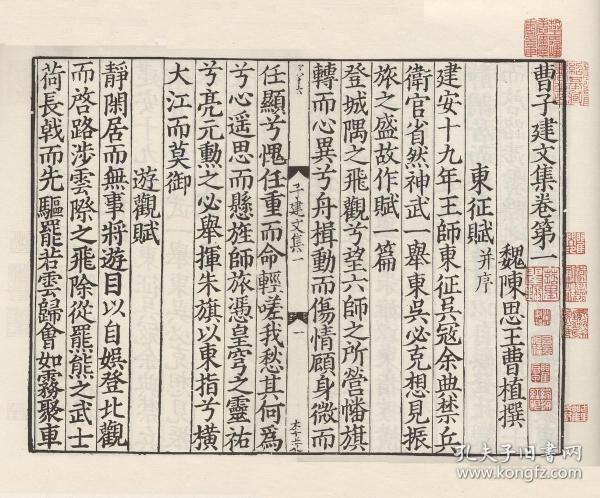 曹子建文集卷第一
魏陳思王曹植撰
東征賦并序
建安十九年王師東征吳寇余典禁兵
衛官省然神武一舉東吳必克想見振
旅之盛故作賦一篇
登城隅之飛觀兮望六師之所營幡旗
轉而心異兮舟楫動而傷情顧身微而
子建文集一
一
任顯兮愧任重而命輕嗟我愁其何為
兮心遥思而懸旌師旅憑皇穹之靈祐
兮亮元勳之必舉揮朱旗以東指兮橫
大江而莫御
遊觀賦
靜閑居而無事將遊目以自娛登北觀
而啓路涉雲際之飛除從羆熊之武士
荷長戟而先驅罷若雲歸會如霧聚車
孔夫子旧书网
www.kongfz.com